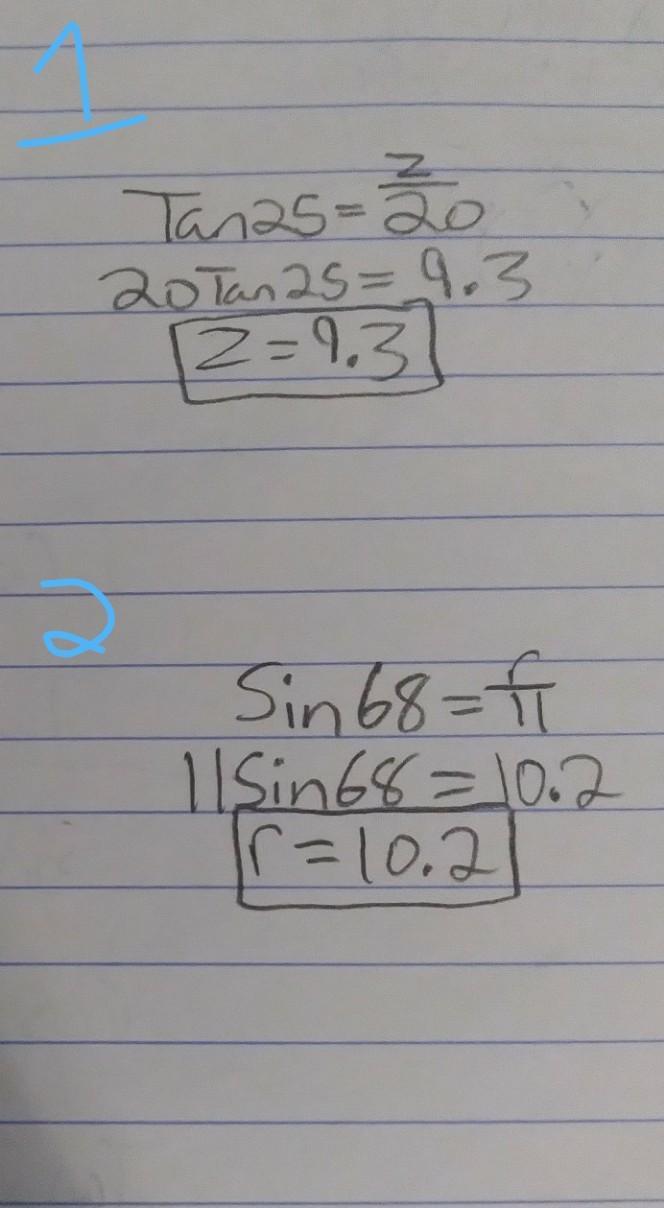 1
Tan25=z/20
20Tan25=9.3
z=9.3
2
Sin68=r/11
11Sin68=10.2
r=10.2